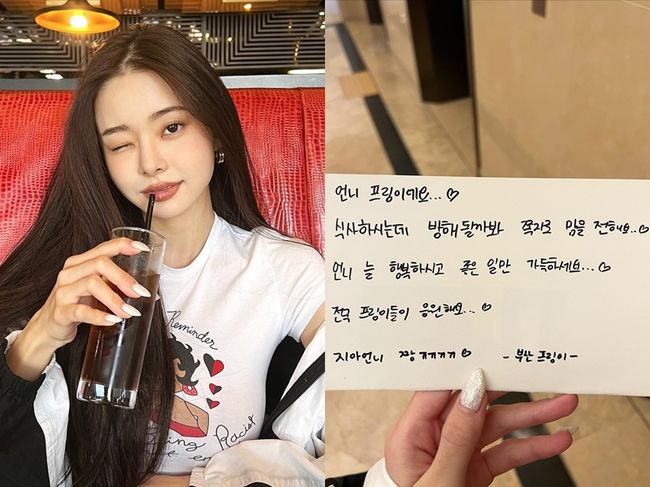 Reminder
Racist
언니 프링이에요...♡
식사하시는데 방해될까봐 쪽지로 맘을 전해요..♡
언니 늘 행복하시고 좋은 일만 가득하세요...♡
전국 프링이들이 응원해요...♡
지아언니 짱 ㄲㄲㄲㄲ♡ -부산 프링이-